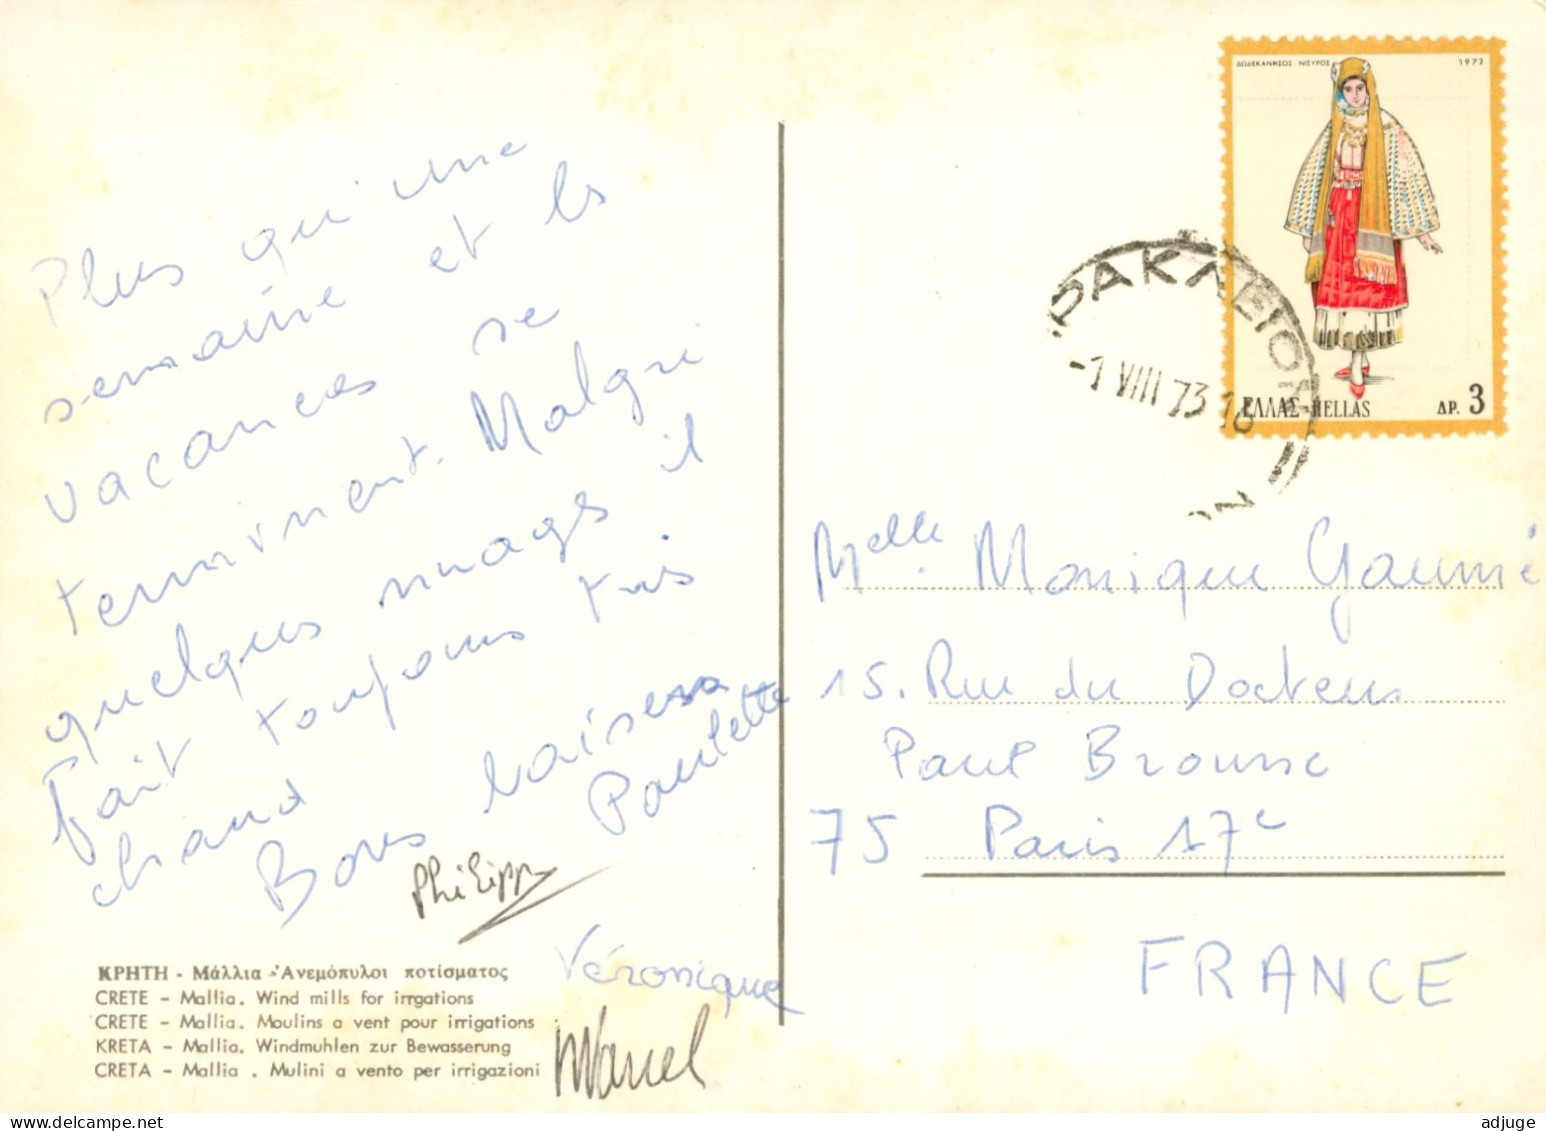 Plus qu'une
semaine et les
vacances se
terminent. Malgré
quelques nuages il
fait toujours très
chaud
Bons baisers
Paulette
Philippe
Véronique
Marcel
ΚΡΗΤΗ - Μάλλια - Ἀνεμόπυλοι ποτίσματος
CRETE - Mallia. Wind mills for irrgations
CRETE - Mallia. Moulins a vent pour irrigations
KRETA - Mallia. Windmuhlen zur Bewasserung
CRETA - Mallia . Mulini a vento per irrigazioni
ΔΩΔΕΚΑΝΗΣΟΣ - ΝΙΣΥΡΟΣ 1972
ΕΛΛΑΣ-HELLAS ΔΡ. 3
ΡΑΚΛΕΙΟΝ
-1 VIII 73
Melle Monique Gaumé
15. Rue du Docteur
Paul Brousse
75 Paris 17e
FRANCE
adjuge